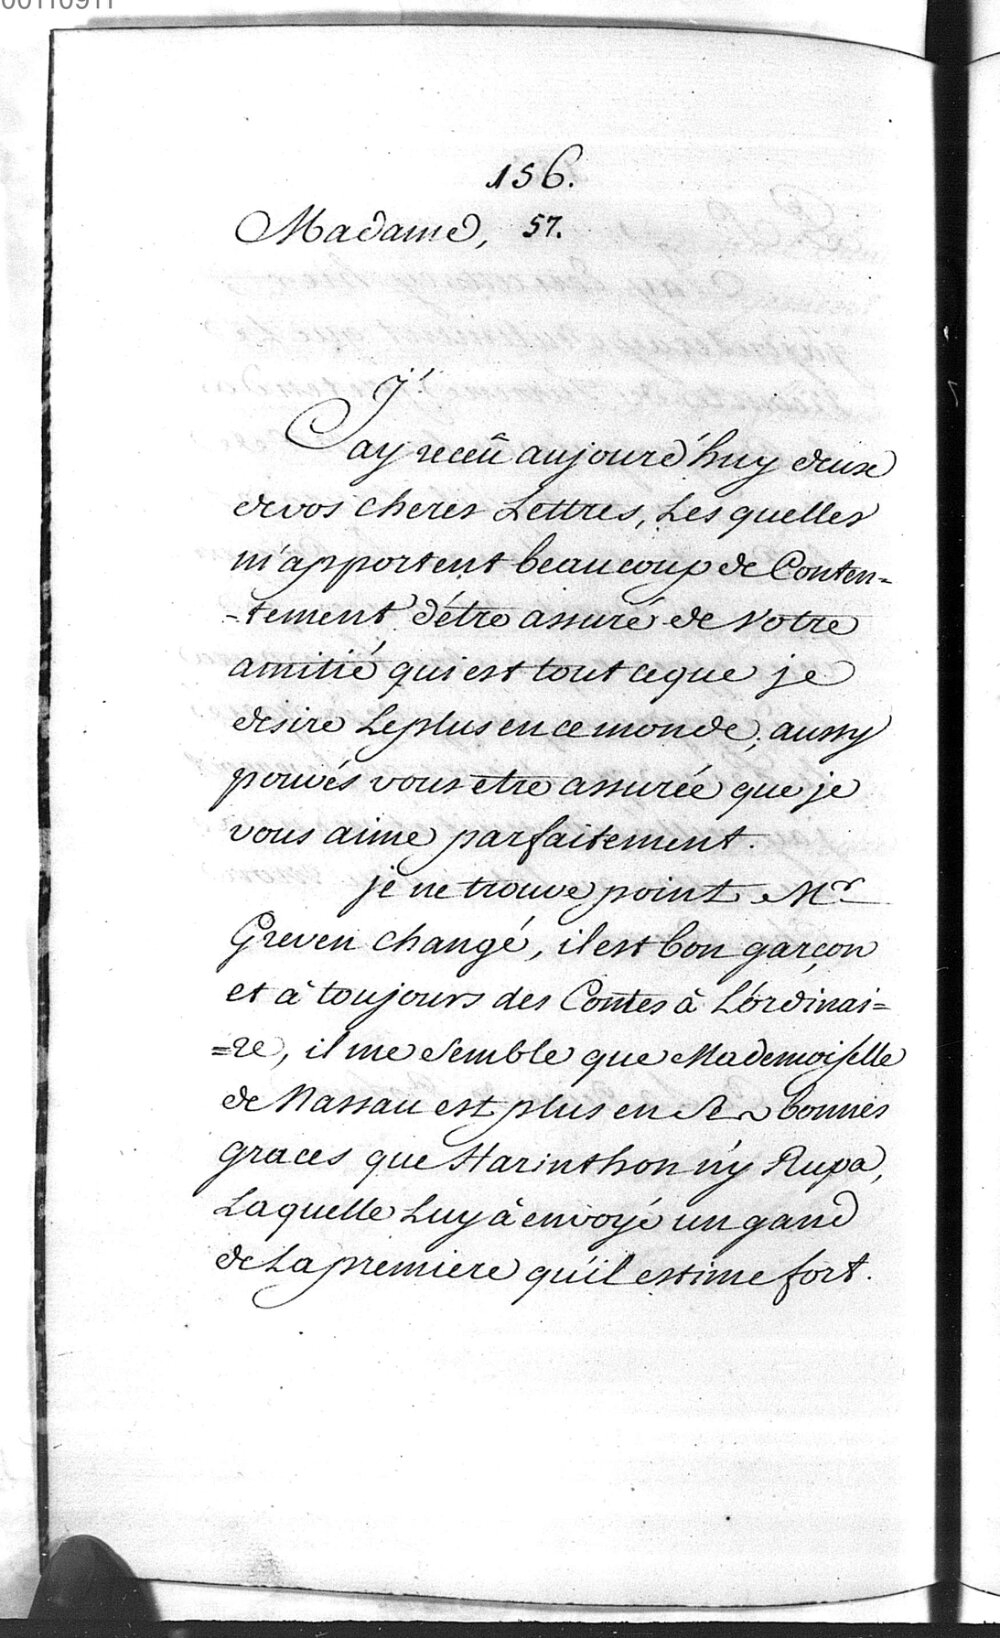 00110911
156.
Madame, 57.
J'ay receû aujourd'huy deux
de vos cheres Lettres, Les quelles
m'apportent beaucoup de Conten=
-tement d'être assuré de Votre
amitié qui est tout ce que je
desire Le plus en ce monde, aussy
pouvés vous etre assurée que je
vous aime parfaitement.
je ne trouve point Mr
Greven changé, il est bon garçon
et à toujours des Contes à L'ordinai=
=re, il me semble que Mademoiselle
de Nassau est plus en Ses bonnes
graces que Harinthon n'y Rupa,
Laquelle Luy à envoyé un gand
de La premiere qu'il estime fort.